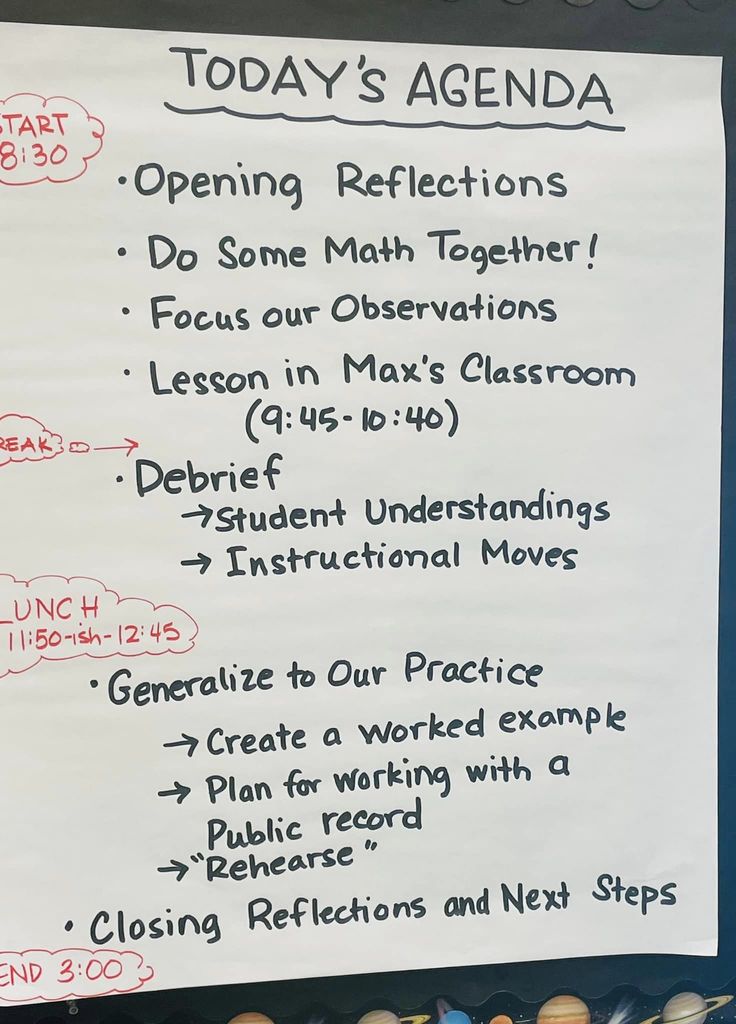 TODAY'S AGENDA
START
8:30
• Opening Reflections
• Do Some Math Together!
• Focus our Observations
• Lesson in Max's Classroom
(9:45-10:40)
BREAK
• Debrief
→ Student Understandings
→ Instructional Moves
LUNCH
11:50-ish-12:45
• Generalize to Our Practice
→ Create a worked example
→ Plan for working with a
Public record
→ "Rehearse"
• Closing Reflections and Next Steps
END 3:00